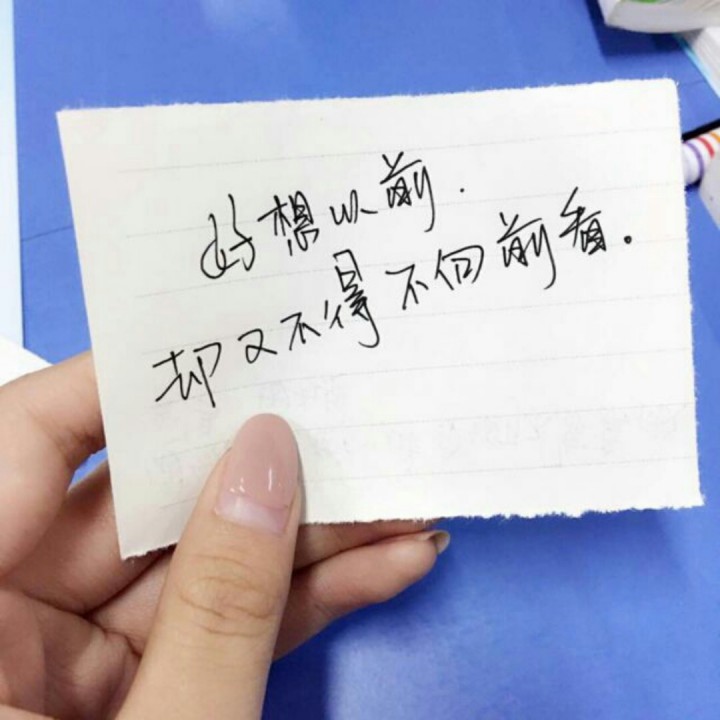 好想以前.
却又不得不向前看。